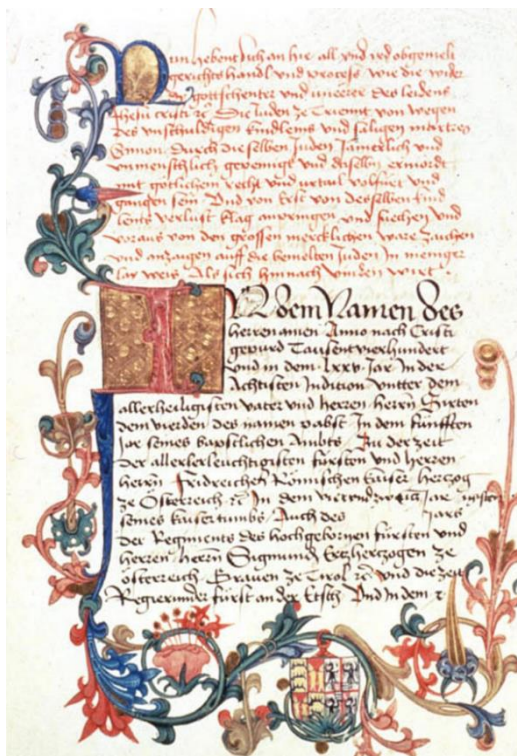 Nun hebent sich an hie all und yed obgemelt
gerichts handl und process wie die wider
die gottschenter und unerer des leidens
Jhesu cristi ꝛc Die Juden ze Trienntt von wegen
des unschuldigen kindleins und saligen martrers
Simon durch die selben Juden Jamerlich und
unmenschlich gepeinigt und desselben ermordt
mit gotlichem recht und urtail volfürt und
gangen sein Und von erst von desselben kind
lents verlust klag anpringen und suechen und
voraus von den grossen mercklichen warezaichen
und anzaigen auff die bemelten Juden In meniger
lay weis Als sich hinnach vinden wirt
In dem Namen des
herren amen Anno nach Cristi
gepurd Tausent vierhundert
und in dem lxxv Jar In der
Achtisten Indition Untter dem
allerheiligisten vater und herren herrn Sixten
dem vierden des namen pabst In dem fünfften
Jar seines bapstlichen Ambts In der zeit
der allerleuchtigisten fürsten und herren
herrn Fridreichen Römischen kaiser herzog
ze Österreich ꝛc In dem Jare
seines kaisertumbs Auch des Jars
der Regiments des hochgebornen fürsten und
herren herrn Sigmund Ertzherzogen ze
österreich Graven ze Tirol ꝛc und die zeit
Regierunder fürst an der Etsch Und In dem